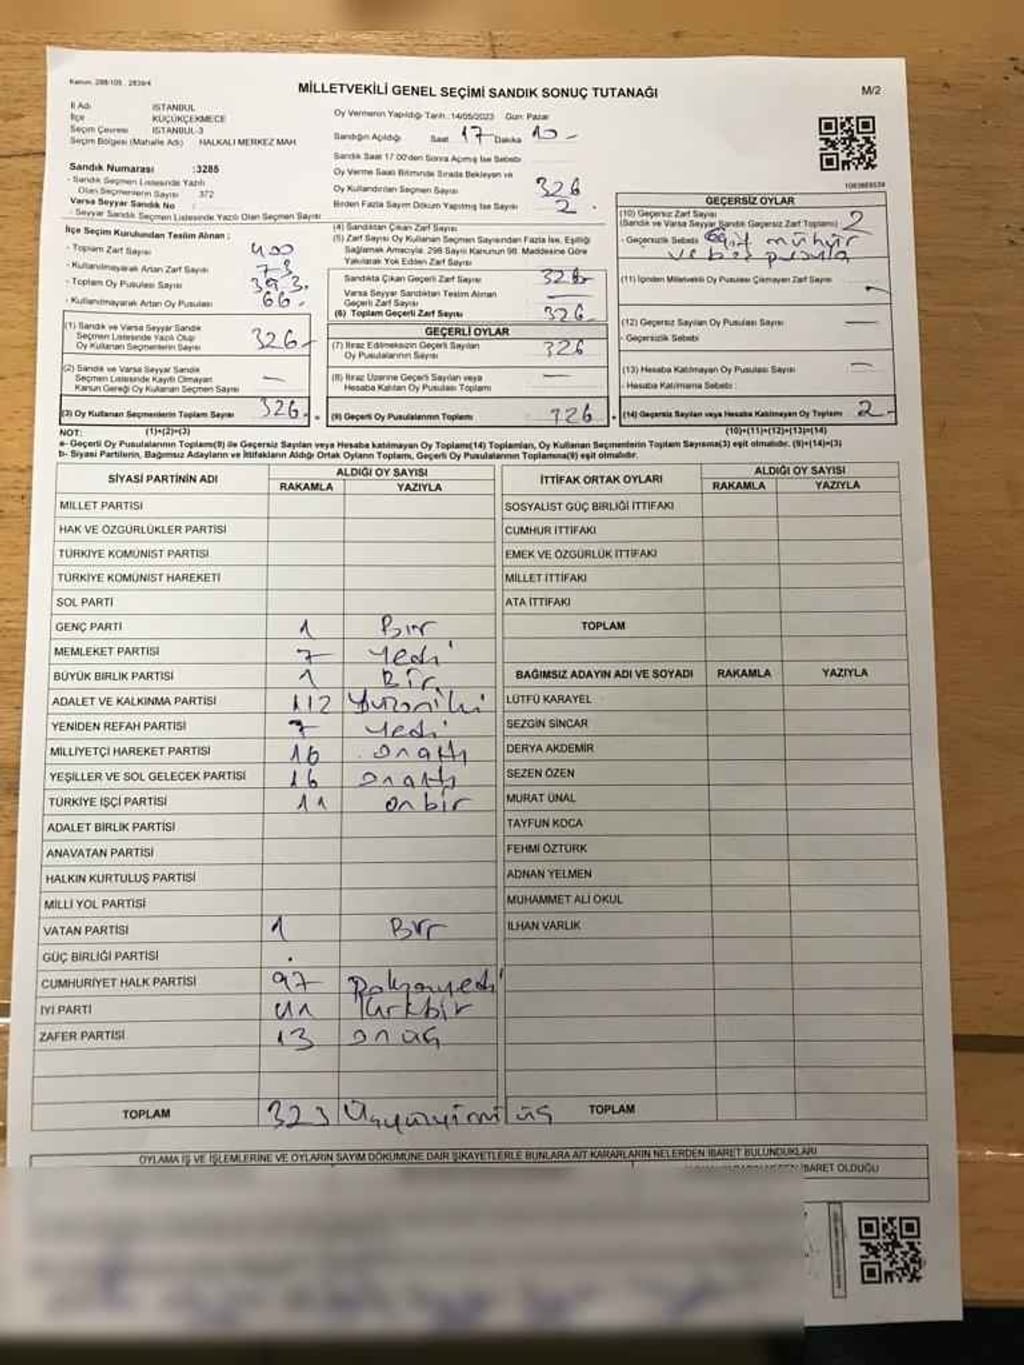 Kanun: 298/105 , 2839/4
MİLLETVEKİLİ GENEL SEÇİMİ SANDIK SONUÇ TUTANAĞI
M/2
İl Adı İSTANBUL
İlçe KÜÇÜKÇEKMECE
Seçim Çevresi İSTANBUL-3
Seçim Bölgesi (Mahalle Adı) HALKALI MERKEZ MAH
Oy Vermenin Yapıldığı Tarih : 14/05/2023 Gün: Pazar
Sandığın Açıldığı Saat 17 Dakika 10
Sandık Saat 17:00'den Sonra Açılmış İse Sebebi
Oy Verme Saati Bitiminde Sırada Bekleyen ve
Oy Kullandırılan Seçmen Sayısı 326
Birden Fazla Sayım Döküm Yapılmış İse Sayısı 2
Sandık Numarası :3285
- Sandık Seçmen Listesinde Yazılı
Olan Seçmenlerin Sayısı 372
Varsa Seyyar Sandık No :
- Seyyar Sandık Seçmen Listesinde Yazılı Olan Seçmen Sayısı
İlçe Seçim Kurulundan Teslim Alınan :
- Toplam Zarf Sayısı 400
- Kullanılmayarak Artan Zarf Sayısı 73
- Toplam Oy Pusulası Sayısı 393
- Kullanılmayarak Artan Oy Pusulası 66
(1) Sandık ve Varsa Seyyar Sandık
Seçmen Listesinde Yazılı Olup
Oy Kullanan Seçmenlerin Sayısı 326
(2) Sandık ve Varsa Seyyar Sandık
Seçmen Listesinde Kayıtlı Olmayan
Kanun Gereği Oy Kullanan Seçmen Sayısı —
(3) Oy Kullanan Seçmenlerin Toplam Sayısı 326
(1)+(2)=(3)
(4) Sandıktan Çıkan Zarf Sayısı
(5) Zarf Sayısı Oy Kullanan Seçmen Sayısından Fazla İse, Eşitliği
Sağlamak Amacıyla, 298 Sayılı Kanunun 98. Maddesine Göre
Yakılarak Yok Edilen Zarf Sayısı
Sandıkta Çıkan Geçerli Zarf Sayısı 326
Varsa Seyyar Sandıktan Teslim Alınan
Geçerli Zarf Sayısı —
(6) Toplam Geçerli Zarf Sayısı 326
GEÇERLİ OYLAR
(7) İtiraz Edilmeksizin Geçerli Sayılan
Oy Pusulalarının Sayısı 326
(8) İtiraz Üzerine Geçerli Sayılan veya
Hesaba Katılan Oy Pusulası Toplamı —
(9) Geçerli Oy Pusulalarının Toplamı 326
GEÇERSİZ OYLAR
(10) Geçersiz Zarf Sayısı
(Sandık ve Varsa Seyyar Sandık Geçersiz Zarf Toplamı) 2
- Geçersizlik Sebebi mühür
ve boş pusula
(11) İçinden Milletvekili Oy Pusulası Çıkmayan Zarf Sayısı
(12) Geçersiz Sayılan Oy Pusulası Sayısı —
- Geçersizlik Sebebi
(13) Hesaba Katılmayan Oy Pusulası Sayısı —
- Hesaba Katılmama Sebebi :
(14) Geçersiz Sayılan veya Hesaba Katılmayan Oy Toplamı 2
(10)+(11)+(12)+(13)=(14)
NOT:
a- Geçerli Oy Pusulalarının Toplamı(9) ile Geçersiz Sayılan veya Hesaba katılmayan Oy Toplamı(14) Toplamları, Oy Kullanan Seçmenlerin Toplam Sayısına(3) eşit olmalıdır. (9)+(14)=(3)
b- Siyasi Partilerin, Bağımsız Adayların ve İttifakların Aldığı Ortak Oyların Toplamı, Geçerli Oy Pusulalarının Toplamına(9) eşit olmalıdır.
SİYASİ PARTİNİN ADI ALDIĞI OY SAYISI
RAKAMLA YAZIYLA
MİLLET PARTİSİ
HAK VE ÖZGÜRLÜKLER PARTİSİ
TÜRKİYE KOMÜNİST PARTİSİ
TÜRKİYE KOMÜNİST HAREKETİ
SOL PARTİ
GENÇ PARTİ 1 Bir
MEMLEKET PARTİSİ 7 Yedi
BÜYÜK BİRLİK PARTİSİ 1 Bir
ADALET VE KALKINMA PARTİSİ 112 Yüzoniki
YENİDEN REFAH PARTİSİ 7 Yedi
MİLLİYETÇİ HAREKET PARTİSİ 16 onaltı
YEŞİLLER VE SOL GELECEK PARTİSİ 16 onaltı
TÜRKİYE İŞÇİ PARTİSİ 11 onbir
ADALET BİRLİK PARTİSİ
ANAVATAN PARTİSİ
HALKIN KURTULUŞ PARTİSİ
MİLLİ YOL PARTİSİ
VATAN PARTİSİ 1 Bir
GÜÇ BİRLİĞİ PARTİSİ
CUMHURİYET HALK PARTİSİ 97 Doksanyedi
İYİ PARTİ 41 Kırkbir
ZAFER PARTİSİ 13 onüç
TOPLAM 323 Üçyüzyirmiüç
İTTİFAK ORTAK OYLARI ALDIĞI OY SAYISI
RAKAMLA YAZIYLA
SOSYALİST GÜÇ BİRLİĞİ İTTİFAKI
CUMHUR İTTİFAKI
EMEK VE ÖZGÜRLÜK İTTİFAKI
MİLLET İTTİFAKI
ATA İTTİFAKI
TOPLAM
BAĞIMSIZ ADAYIN ADI VE SOYADI RAKAMLA YAZIYLA
LÜTFÜ KARAYEL
SEZGİN SİNCAR
DERYA AKDEMİR
SEZEN ÖZEN
MURAT ÜNAL
TAYFUN KOCA
FEHMİ ÖZTÜRK
ADNAN YELMEN
MUHAMMET ALİ OKUL
İLHAN VARLIK
TOPLAM
OYLAMA İŞ VE İŞLEMLERİNE VE OYLARIN SAYIM DÖKÜMÜNE DAİR ŞİKAYETLERLE BUNLARA AİT KARARLARIN NELERDEN İBARET BULUNDUKLARI
İBARET OLDUĞU